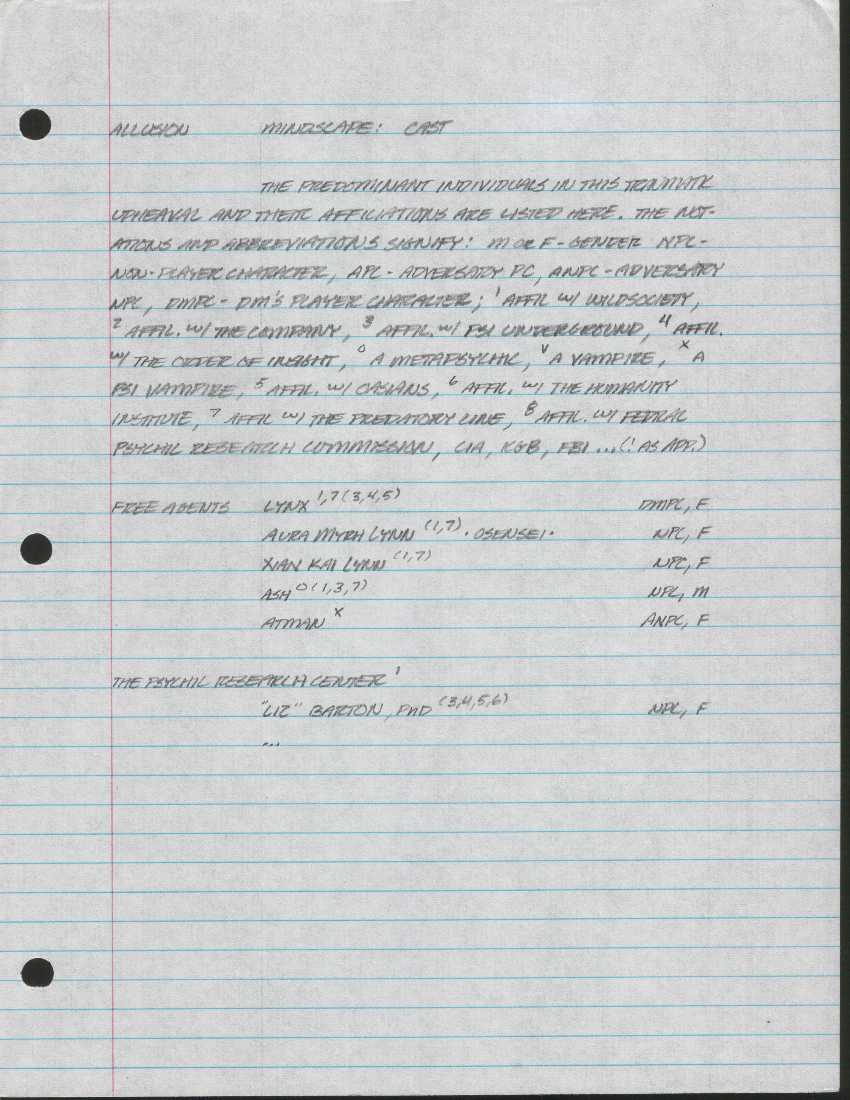 ALLUSION MINDSCAPE: CAST
THE PREDOMINANT INDIVIDUALS IN THIS TRAUMATIC
UPHEAVAL AND THEIR AFFILIATIONS ARE LISTED HERE. THE NOT-
ATIONS AND ABBREVIATIONS SIGNIFY: M OR F - GENDER NPC -
NON-PLAYER CHARACTER, APC - ADVERSARY PC, ANPC - ADVERSARY
NPC, DMPC - DM'S PLAYER CHARACTER; 1 AFFIL W/ WILDSOCIETY,
2 AFFIL. W/ THE COMPANY, 3 AFFIL. W/ PSI UNDERGROUND, 4 AFFIL.
W/ THE ORDER OF INSIGHT, O A METAPSYCHIC, V A VAMPIRE, X A
PSI VAMPIRE, 5 AFFIL. W/ CASIANS, 6 AFFIL. W/ THE HUMANITY
INSTITUTE, 7 AFFIL W/ THE PREDATORY LINE, 8 AFFIL. W/ FEDRAL
PSYCHIC RESEARCH COMMISSION, CIA, KGB, FBI ... (! AS APP.)
FREE AGENTS LYNX 1,7 (3,4,5) DMPC, F
AURA MYRH LYNN (1,7) · OSENSEI · NPC, F
XIAN KAI LYNN (1,7) NPC, F
ASH O (1,3,7) NPC, M
ATMAN X ANPC, F
THE PSYCHIC RESEARCH CENTER 1
"LIZ" BARTON, PHD (3,4,5,6) NPC, F
...